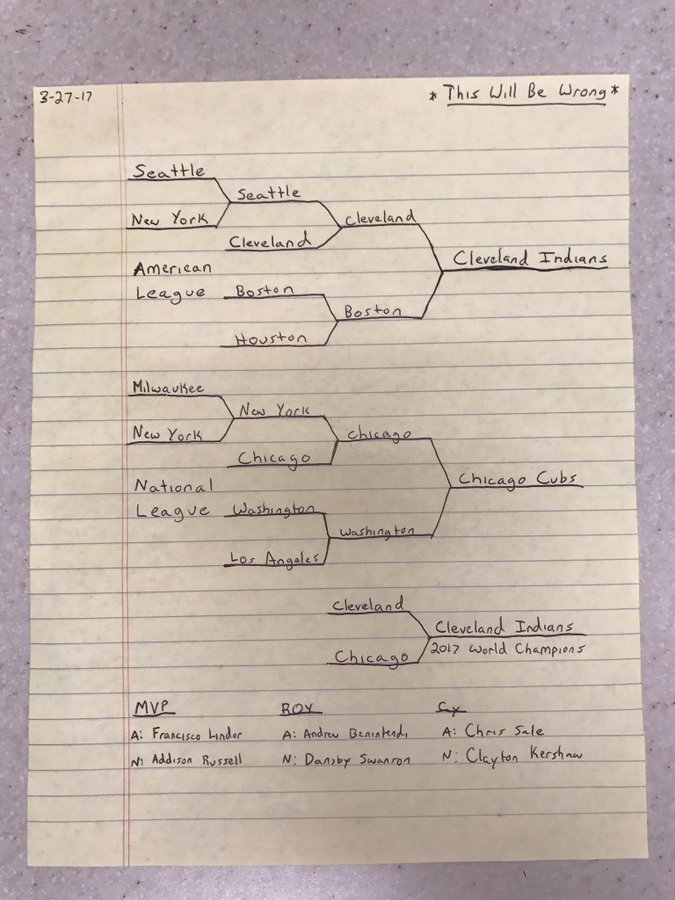 3-27-17
* This Will Be Wrong *
Seattle
Seattle
New York
Cleveland
Cleveland
Cleveland Indians
American
League
Boston
Boston
Houston
Milwaukee
New York
New York
Chicago
Chicago
Chicago Cubs
National
League
Washington
Washington
Los Angeles
Cleveland
Cleveland Indians
2017 World Champions
Chicago
MVP ROY Cy
A: Francisco Lindor A: Andrew Benintendi A: Chris Sale
N: Addison Russell N: Dansby Swanson N: Clayton Kershaw